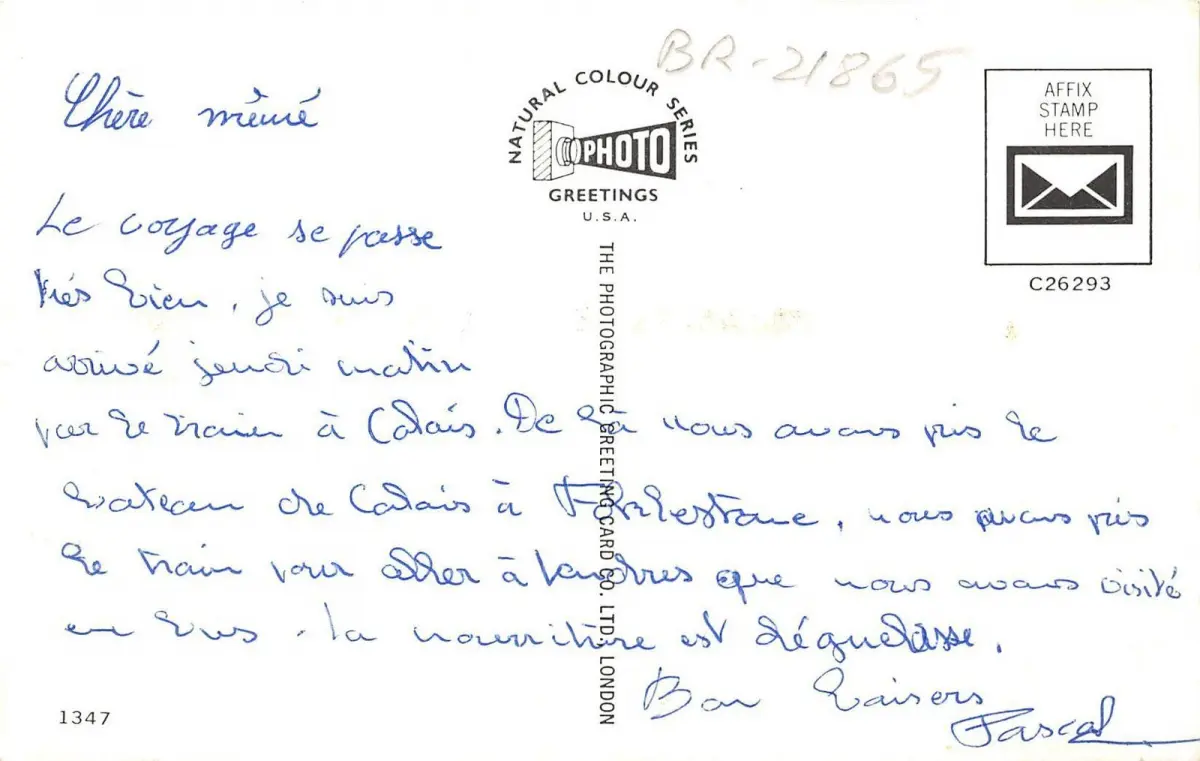 BR-21865
NATURAL COLOUR SERIES
PHOTO
GREETINGS
U.S.A.
AFFIX
STAMP
HERE
C26293
Chère mémé
Le voyage se passe
très bien, je suis
arrivé jeudi matin
par le train à Calais. De là nous avons pris le
bateau de Calais à Folkestone, nous avons pris
le train pour aller à Londres que nous avons visité
en bus. La nourriture est déguelasse.
Bon baisers
Pascal
THE PHOTOGRAPHIC GREETING CARD CO. LTD. LONDON
1347